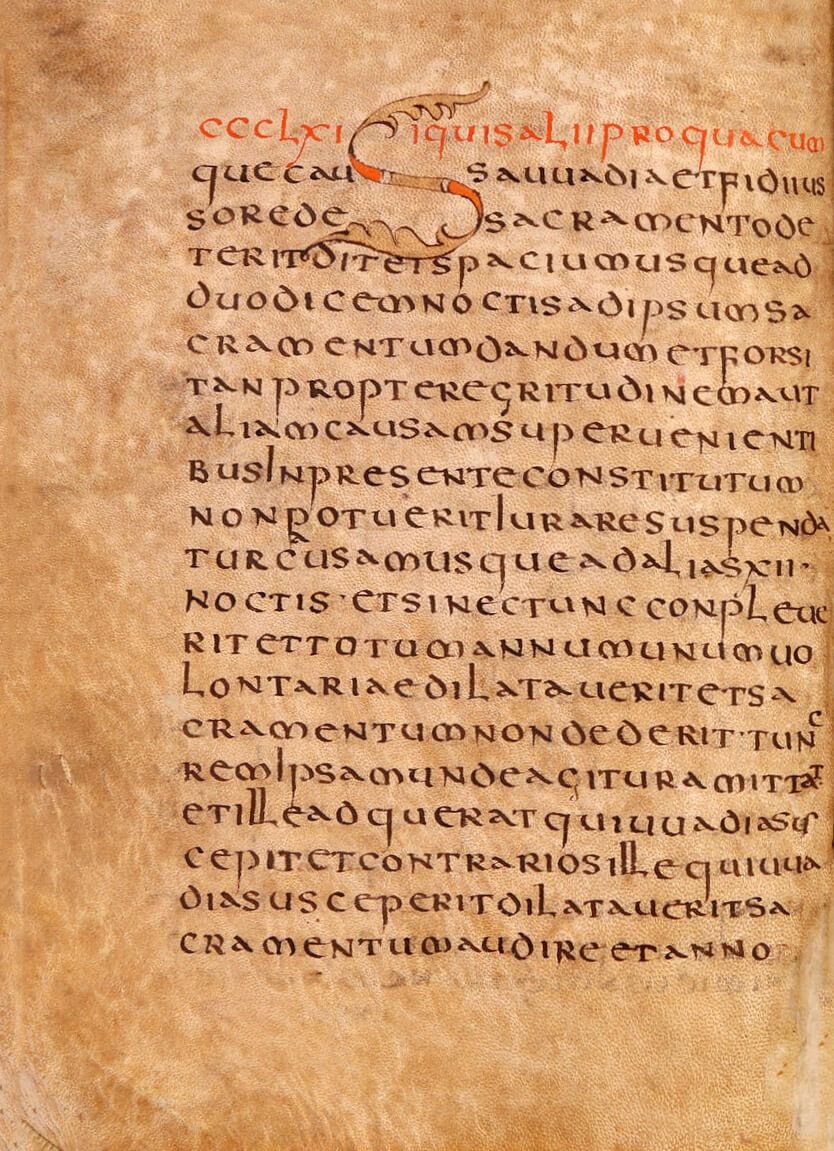 ccclxi Siquisaliiproquacum
quecausauuadiaetfidiius
soredesacramentode
teritditeispaciumusquead
duodicemnoctisadipsumsa
cramentumdandumetforsi
tanpropteregritudinemaut
aliamcausamsuperuenienti
businpresenteconstitutum
nonpotueritiuraresuspenda
turcausamusqueadaliasxii·
noctis·etsinectuncconpleue
ritettotumannumunumuo
luntariaedilataueritetsa
cramentumnondederit·tunc
remipsamundeagituramittat·
etilleadqueratquiuuadiasus
cepitetcontrariosillequiuua
diasusceperitdilataueritsa
cramentumaudireetanno